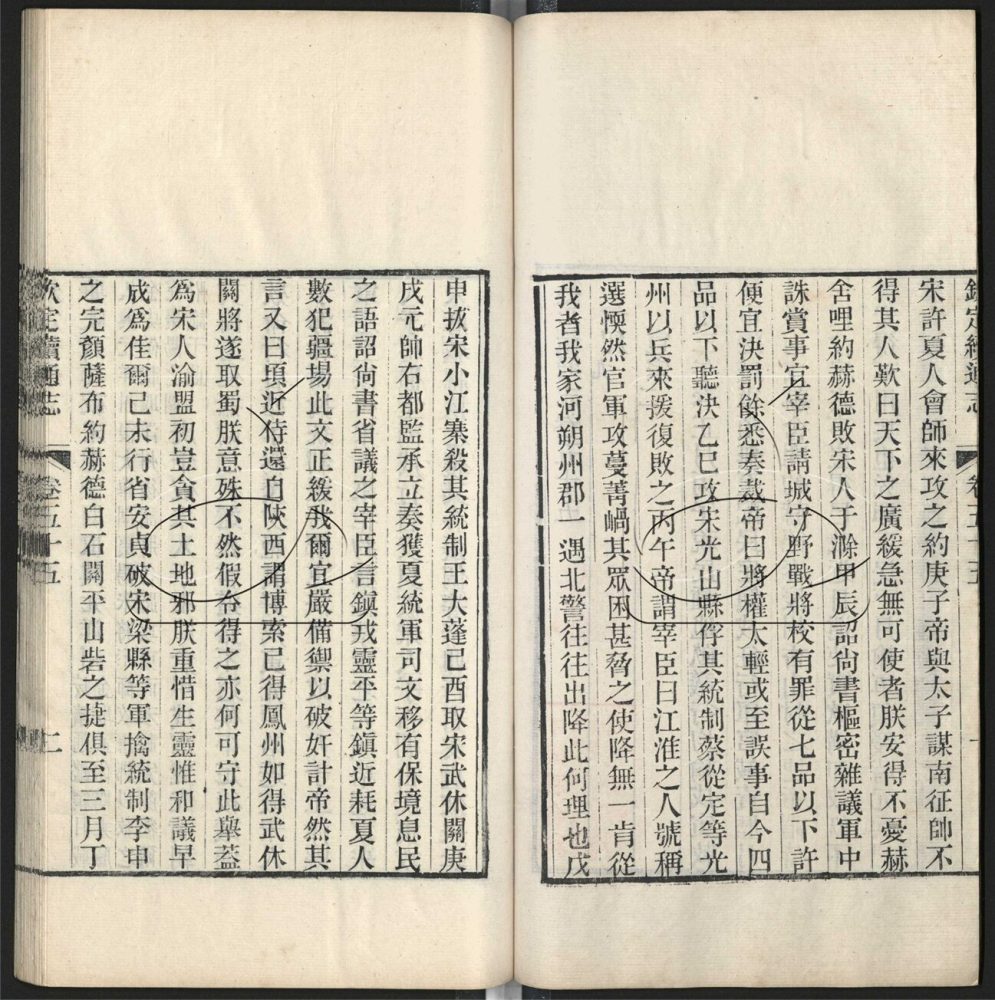 欽定續通志 卷五十五 一
宋許夏人會師來攻之約庚子帝與太子謀南征帥不
得其人歎曰天下之廣緩急無可使者朕安得不憂赫
舍哩約赫德敗宋人于滁甲辰詔尙書樞密雜議軍中
誅賞事宜宰臣請城守野戰將校有罪從七品以下許
便宜決罰餘悉奏裁帝曰將權太輕或至誤事自今四
品以下聽決乙巳攻宋光山縣俘其統制蔡從定等光
州以兵來援復敗之丙午帝謂宰臣曰江淮之人號稱
選愞然官軍攻蔓菁崓其眾困甚脅之使降無一肯從
我者我家河朔州郡一遇北警往往出降此何理也戊
申拔宋小江寨殺其統制王大蓬己酉取宋武休關庚
戌元帥右都監承立奏獲夏統軍司文移有保境息民
之語詔尙書省議之宰臣言鎮戎靈平等鎮近耗夏人
數犯疆場此文正緩我爾宜嚴備禦以破奸計帝然其
言又曰頃近侍還自陝西謂博索已得鳳州如得武休
關將遂取蜀朕意殊不然假令得之亦何可守此舉蓋
爲宋人渝盟初豈貪其土地邪朕重惜生靈惟和議早
成爲佳爾己未行省安貞破宋梁縣等軍擒統制李申
之完顏薩布約赫德白石關平山砦之捷俱至三月丁
欽定續通志 卷五十五 二